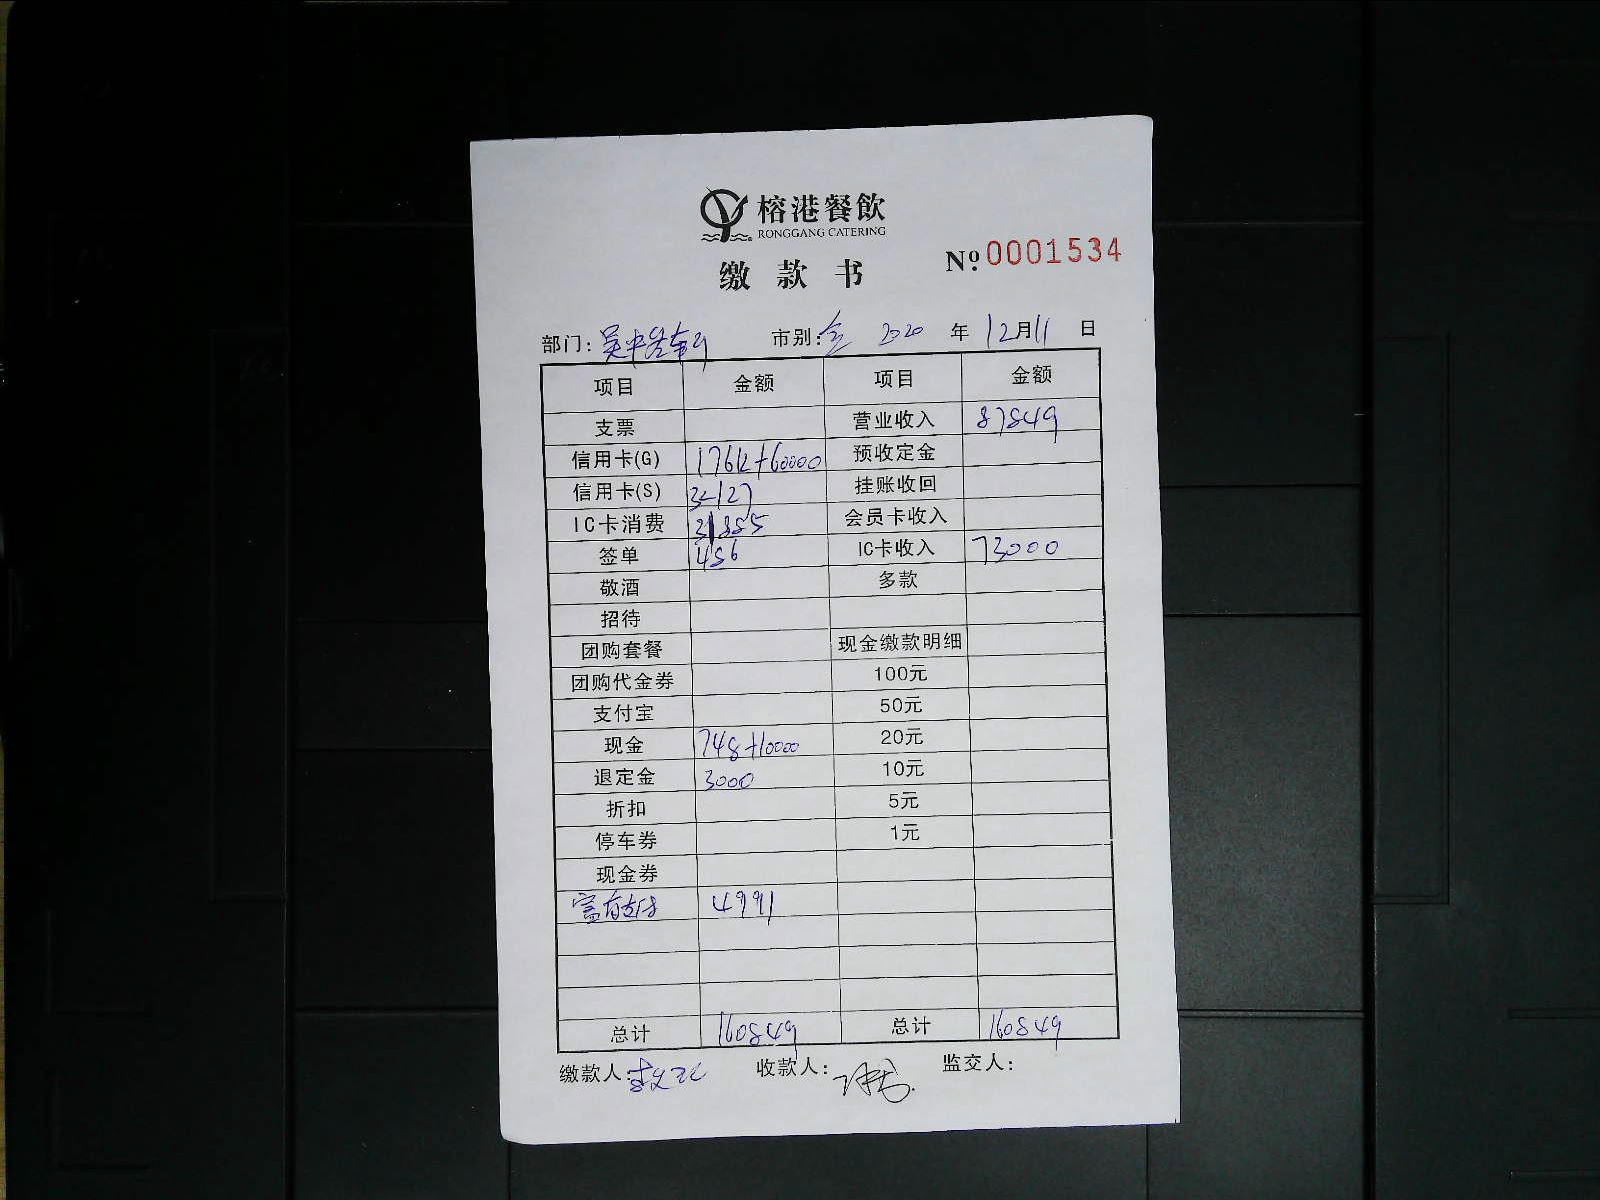 榕港餐飲
RONGGANG CATERING
缴款书 No.0001534
部门: 市别:全 2020 年 12月11 日
项目 金额 项目 金额
支票 营业收入 87849
信用卡(G) 17612+60000 预收定金
信用卡(S) 32127 挂账收回
IC卡消费 31855 会员卡收入
签单 456 IC卡收入 73000
敬酒 多款
招待
团购套餐 现金缴款明细
团购代金券 100元
支付宝 50元
现金 748+10000 20元
退定金 3000 10元
折扣 5元
停车券 1元
现金券
富友支付 4991
总计 160849 总计 160849
缴款人: 收款人: 监交人: